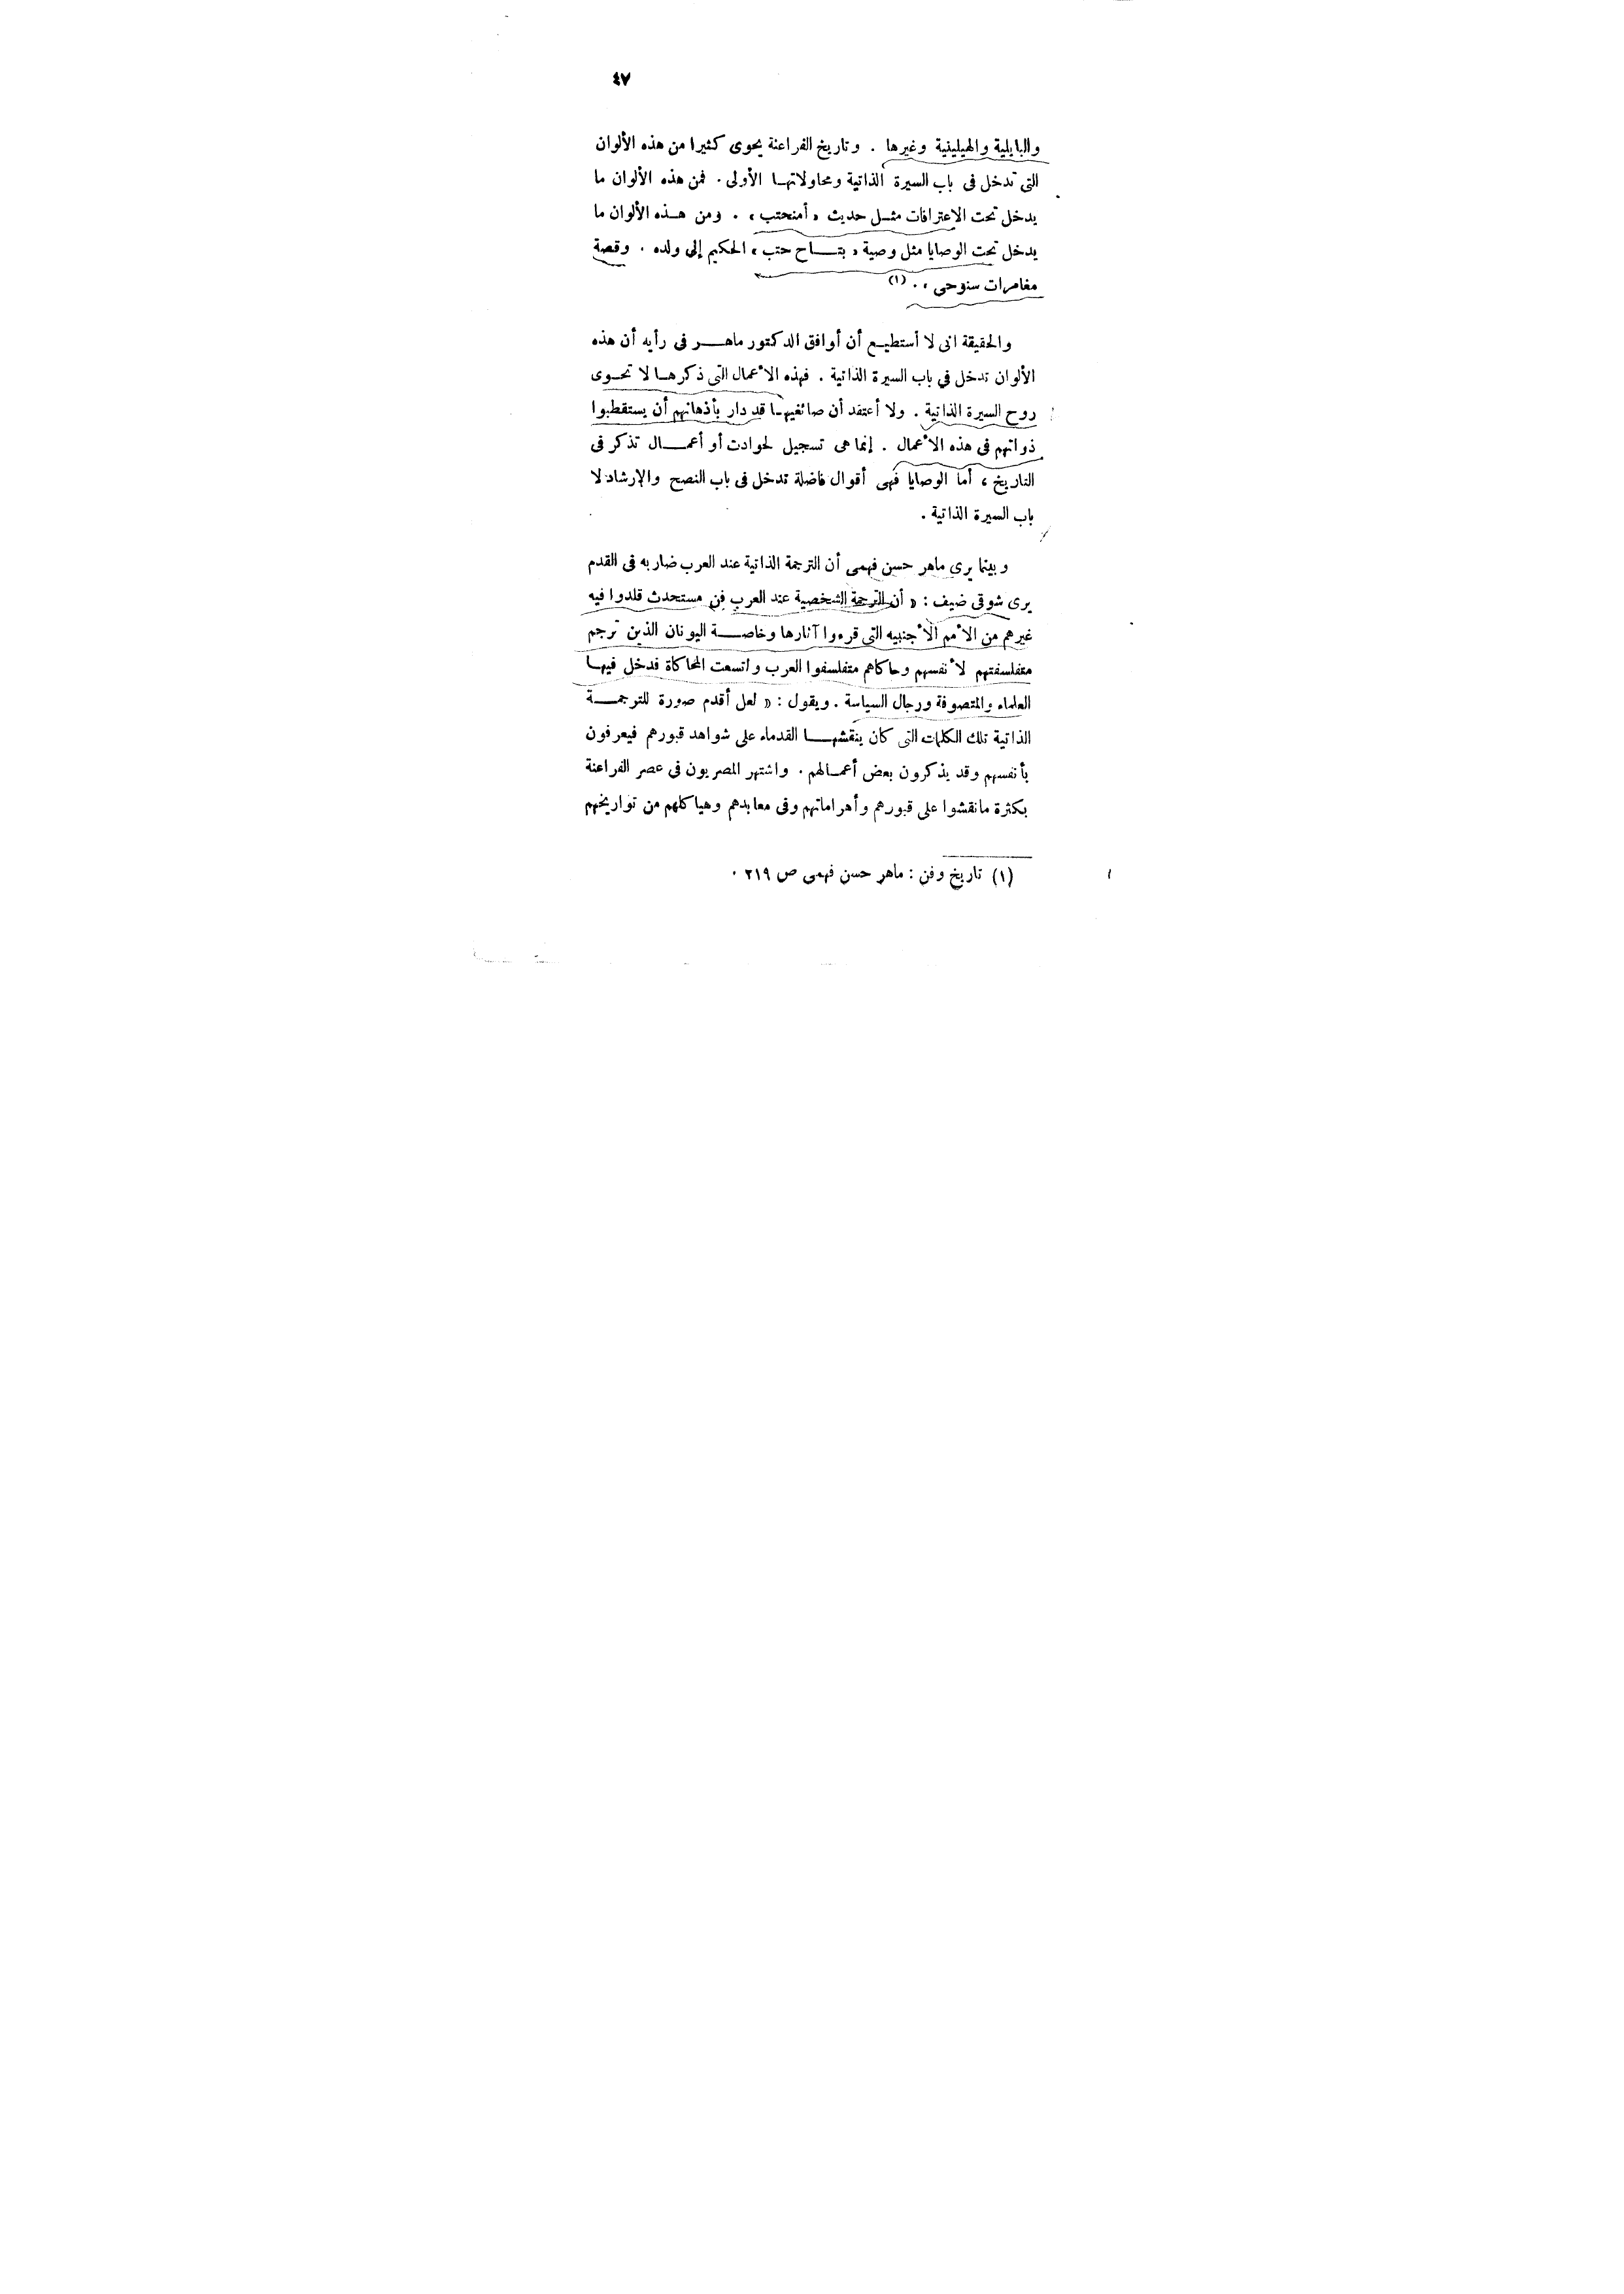 ٤٧
والبابلية والهيلينية وغيرها . وتاريخ الفراعنة يحوى كثيرا من هذه الألوان
التى تدخل فى باب السيرة الذاتية ومحاولاتها الأولى . فمن هذه الألوان ما
يدخل تحت الاعترافات مثل حديث « أمنحتب » . ومن هذه الألوان ما
يدخل تحت الوصايا مثل وصية « بتاح حتب » الحكيم إلى ولده . وقصة
مغامرات سنوحى » . (١)
والحقيقة انى لا أستطيع أن أوافق الدكتور ماهر فى رأيه أن هذه
الألوان تدخل في باب السيرة الذاتية . فهذه الأعمال التى ذكرها لا تحوى
روح السيرة الذاتية . ولا أعتقد أن صائغيها قد دار بأذهانهم أن يستقطبوا
ذواتهم فى هذه الأعمال . إنما هى تسجيل لحوادث أو أعمال تذكر فى
التاريخ ، أما الوصايا فهى أقوال فاضلة تدخل فى باب النصح والإرشاد لا
باب السيرة الذاتية .
وبينما يرى ماهر حسن فهمى أن الترجمة الذاتية عند العرب ضاربه فى القدم
يرى شوقى ضيف : « أن الترجمة الشخصية عند العرب فن مستحدث قلدوا فيه
غيرهم من الأمم الأجنبيه التى قرءوا آثارها وخاصة اليونان الذين ترجم
متفلسفتهم لأنفسهم وحاكاهم متفلسفوا العرب واتسعت المحاكاة فدخل فيها
العلماء والمتصوفة ورجال السياسة . ويقول : « لعل أقدم صورة للترجمة
الذاتية تلك الكلمات التى كان ينقشها القدماء على شواهد قبورهم فيعرفون
بأنفسهم وقد يذكرون بعض أعمالهم . واشتهر المصريون فى عصر الفراعنة
بكثرة مانقشوا على قبورهم وأهراماتهم وفى معابدهم وهياكلهم من تواريخهم
(١) تاريخ وفن : ماهر حسن فهمى ص ٢١٩ .